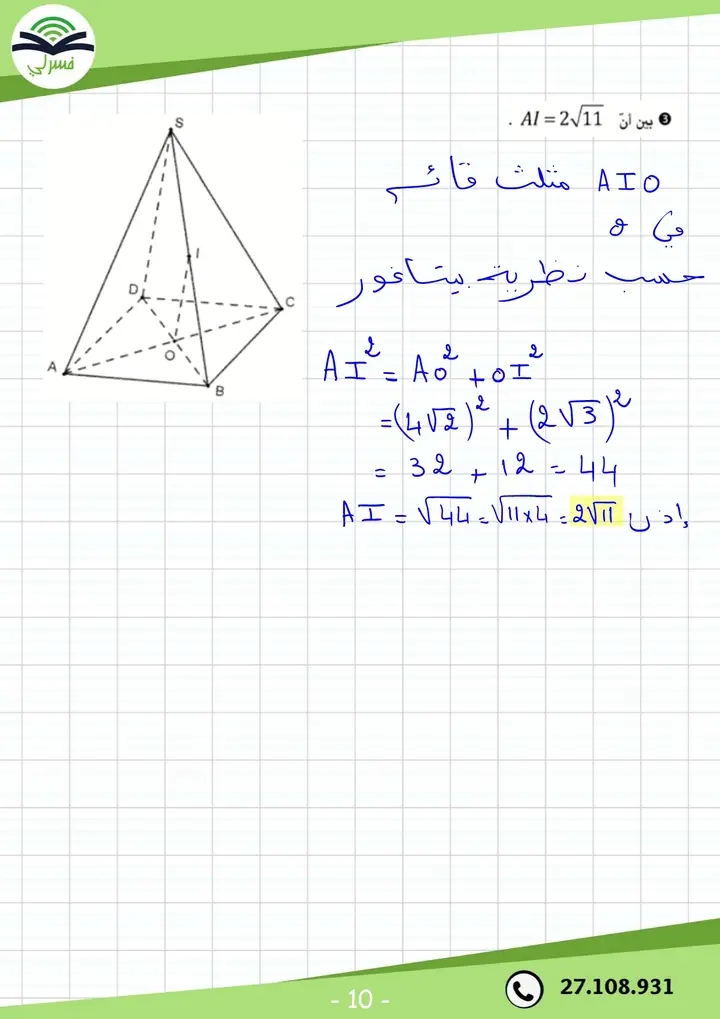 فسرلي
❸ بين انّ AI = 2√11 .
S
I
D
C
O
A
B
AIO مثلث قائم
في O
حسب نظرية بيتاغور
AI² = AO² + OI²
= (4√2)² + (2√3)²
= 32 + 12 = 44
إذن AI = √44 = √11×4 = 2√11
- 10 -
27.108.931